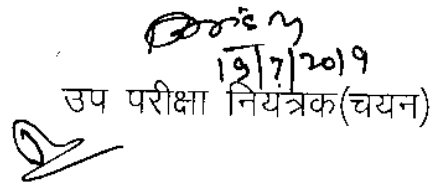 19/7/2019
उप परीक्षा नियंत्रक(चयन)